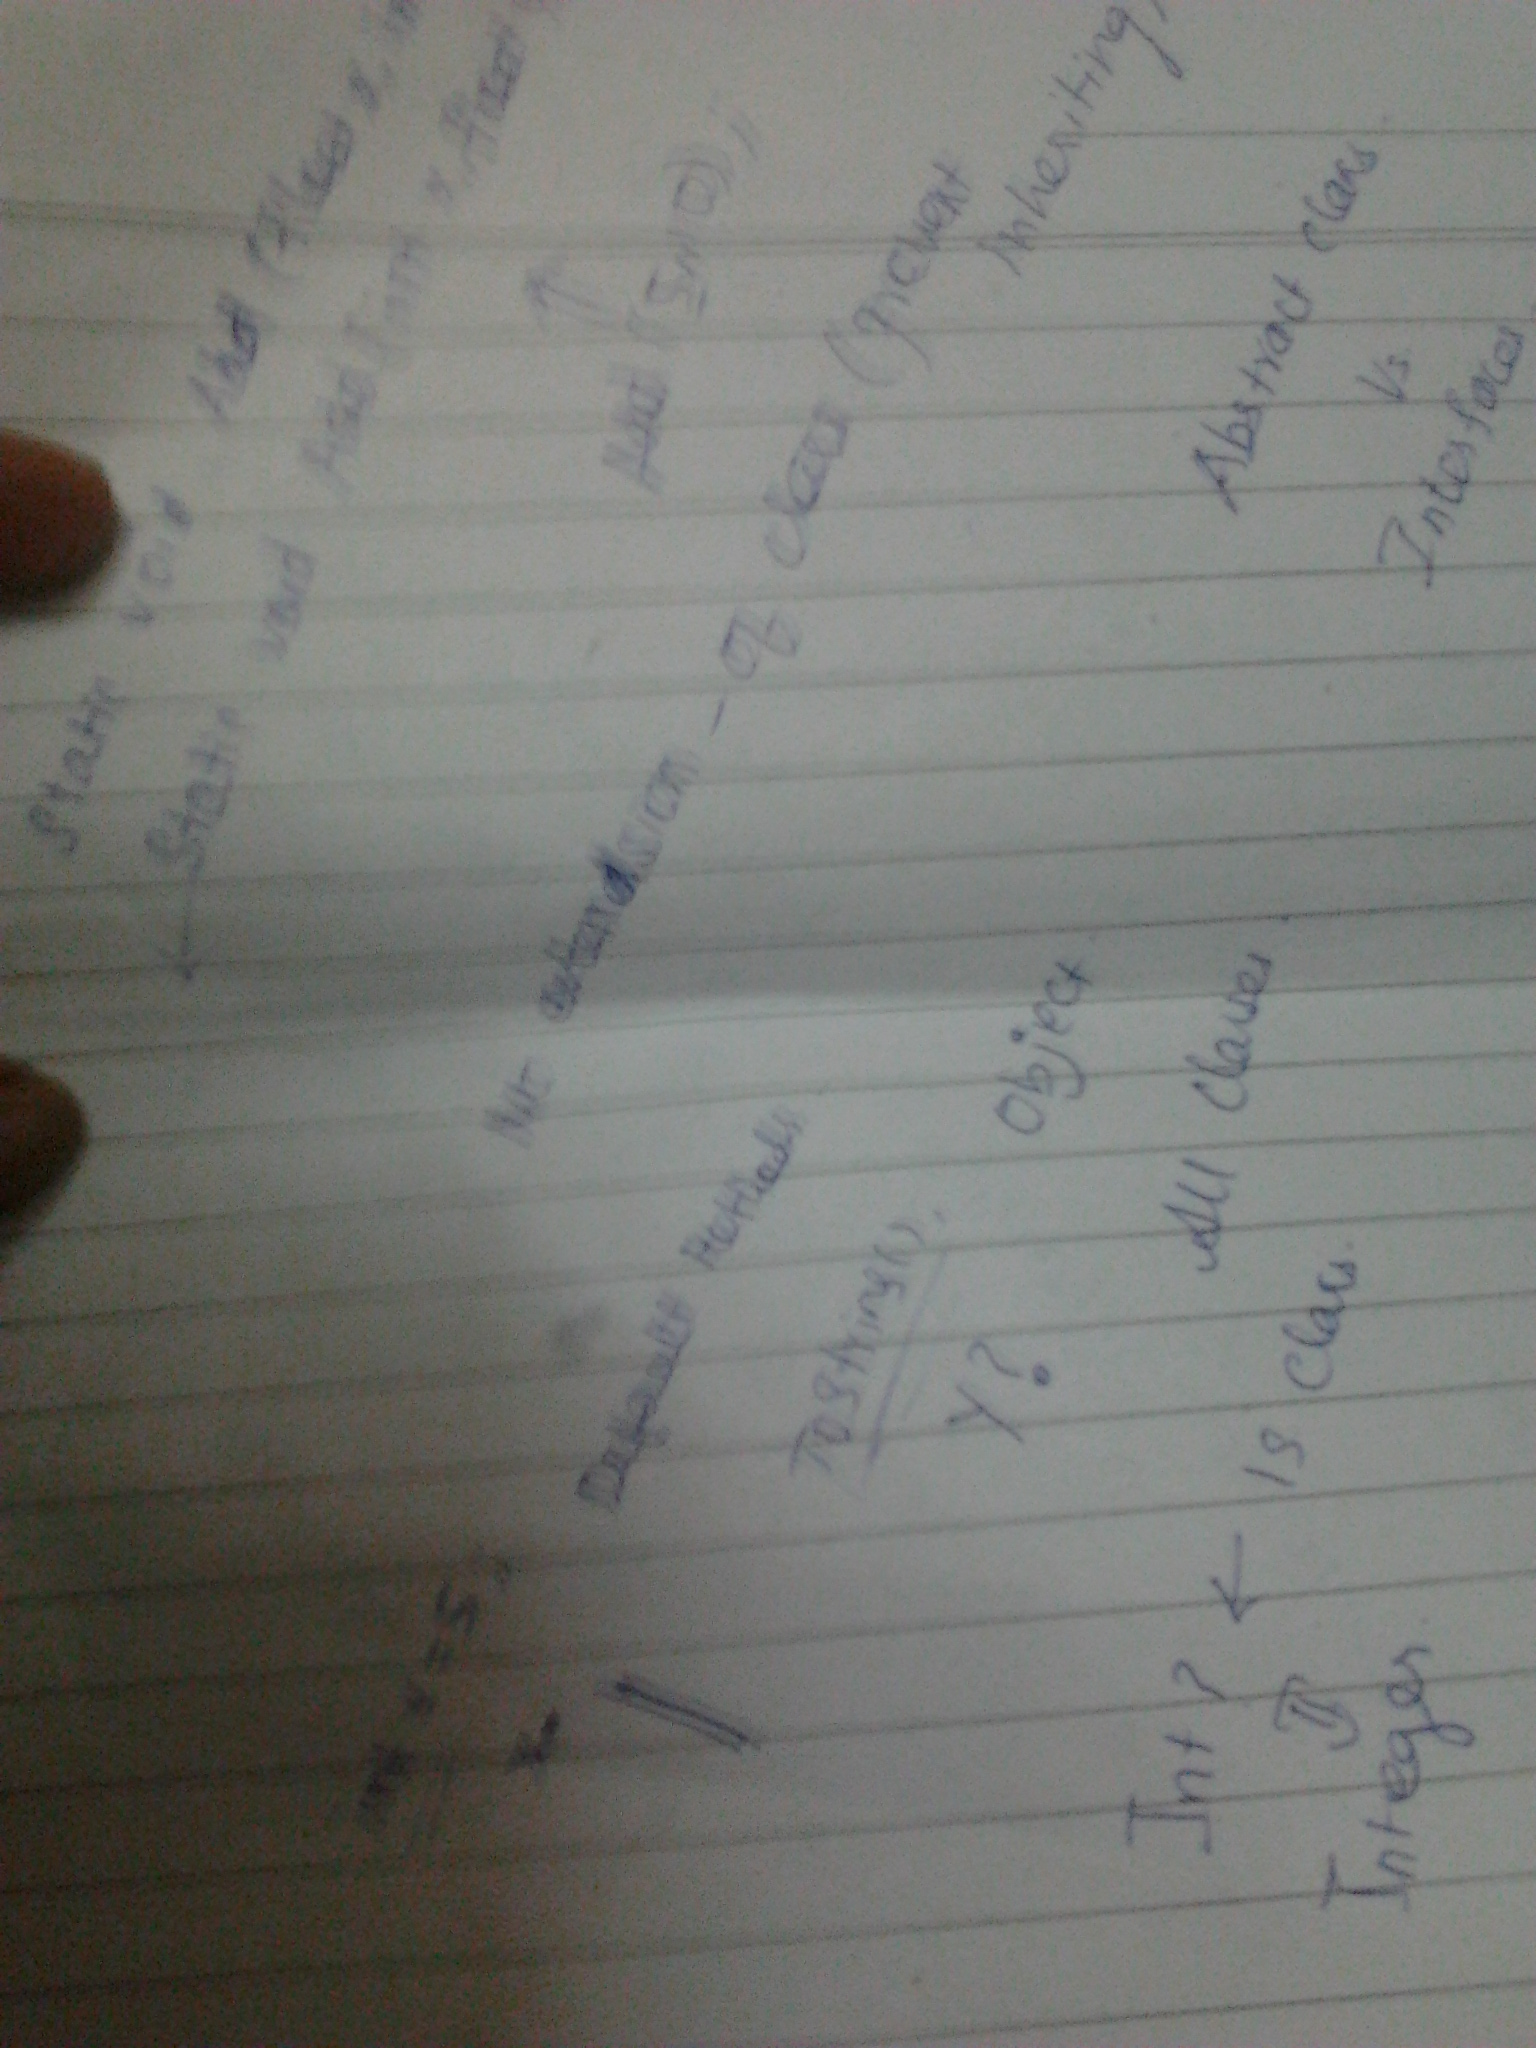 static void Add (float x, int
static void Add (int x, float
int x = 5;
x.
Add (5, 10);
Not extension - Of class (prevent
inheriting)
Default Methods
ToString();
Y?
Object.
All Classes.
Int?
Is Class.
Integer.
Abstract class
Vs.
Interfaces.